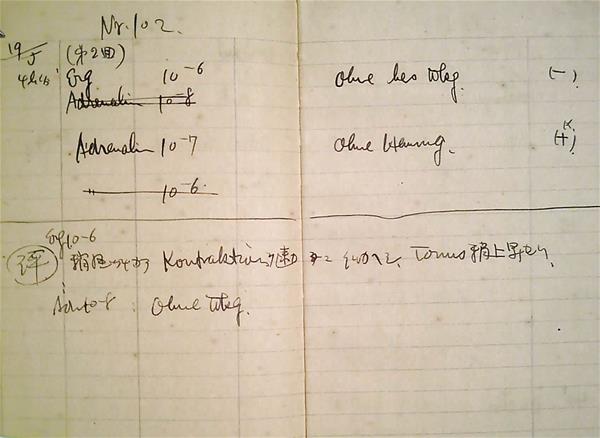 Nr. 102.
19/5 (第2回)
Erg 10-6 Ohne bes Wkg. (-)
Adrenalin 10-8
Adrenalin 10-7 Ohne Hemmung. (+)
〃 10-6.
Erg 10-6
評 Kontraktion Tonus 稍上昇セリ,
10-8 : Ohne Wkg.